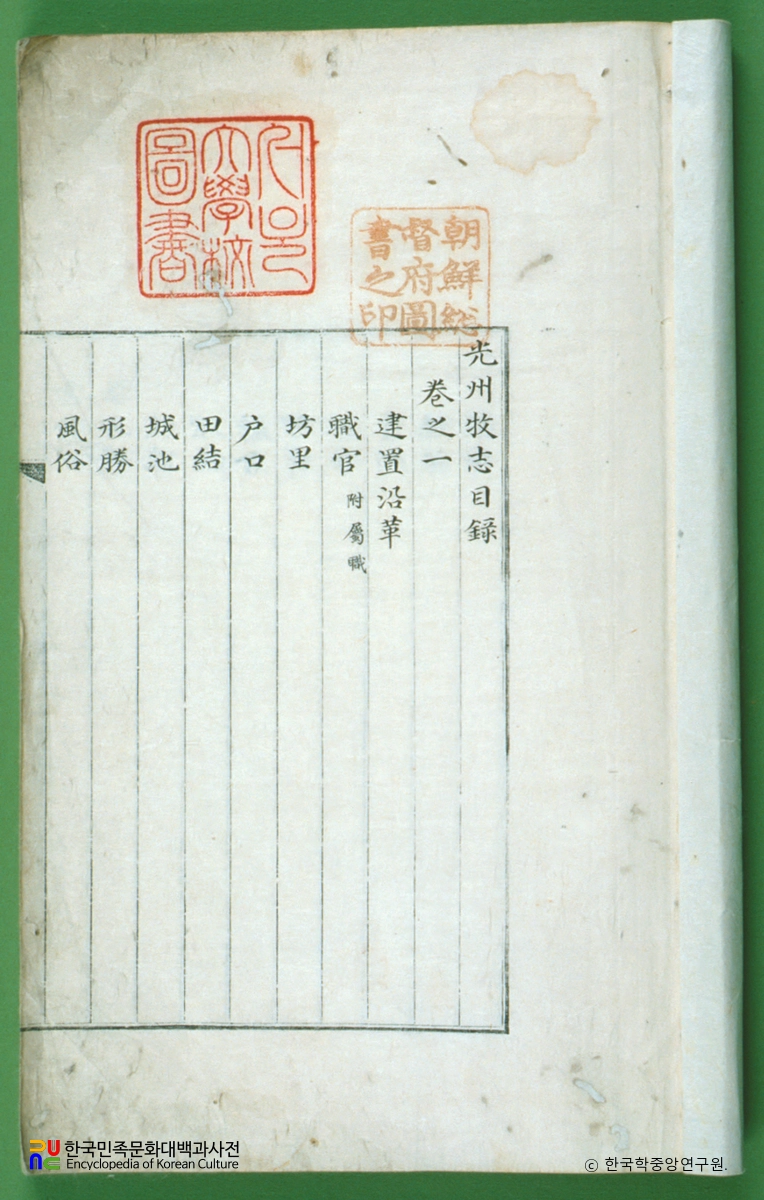 서울
大學校
圖書
朝鮮総
督府圖
書之印
光州牧志目録
卷之一
建置沿革
職官 附屬職
坊里
户口
田結
城池
形勝
風俗
한국민족문화대백과사전
Encyclopedia of Korean Culture
© 한국학중앙연구원.